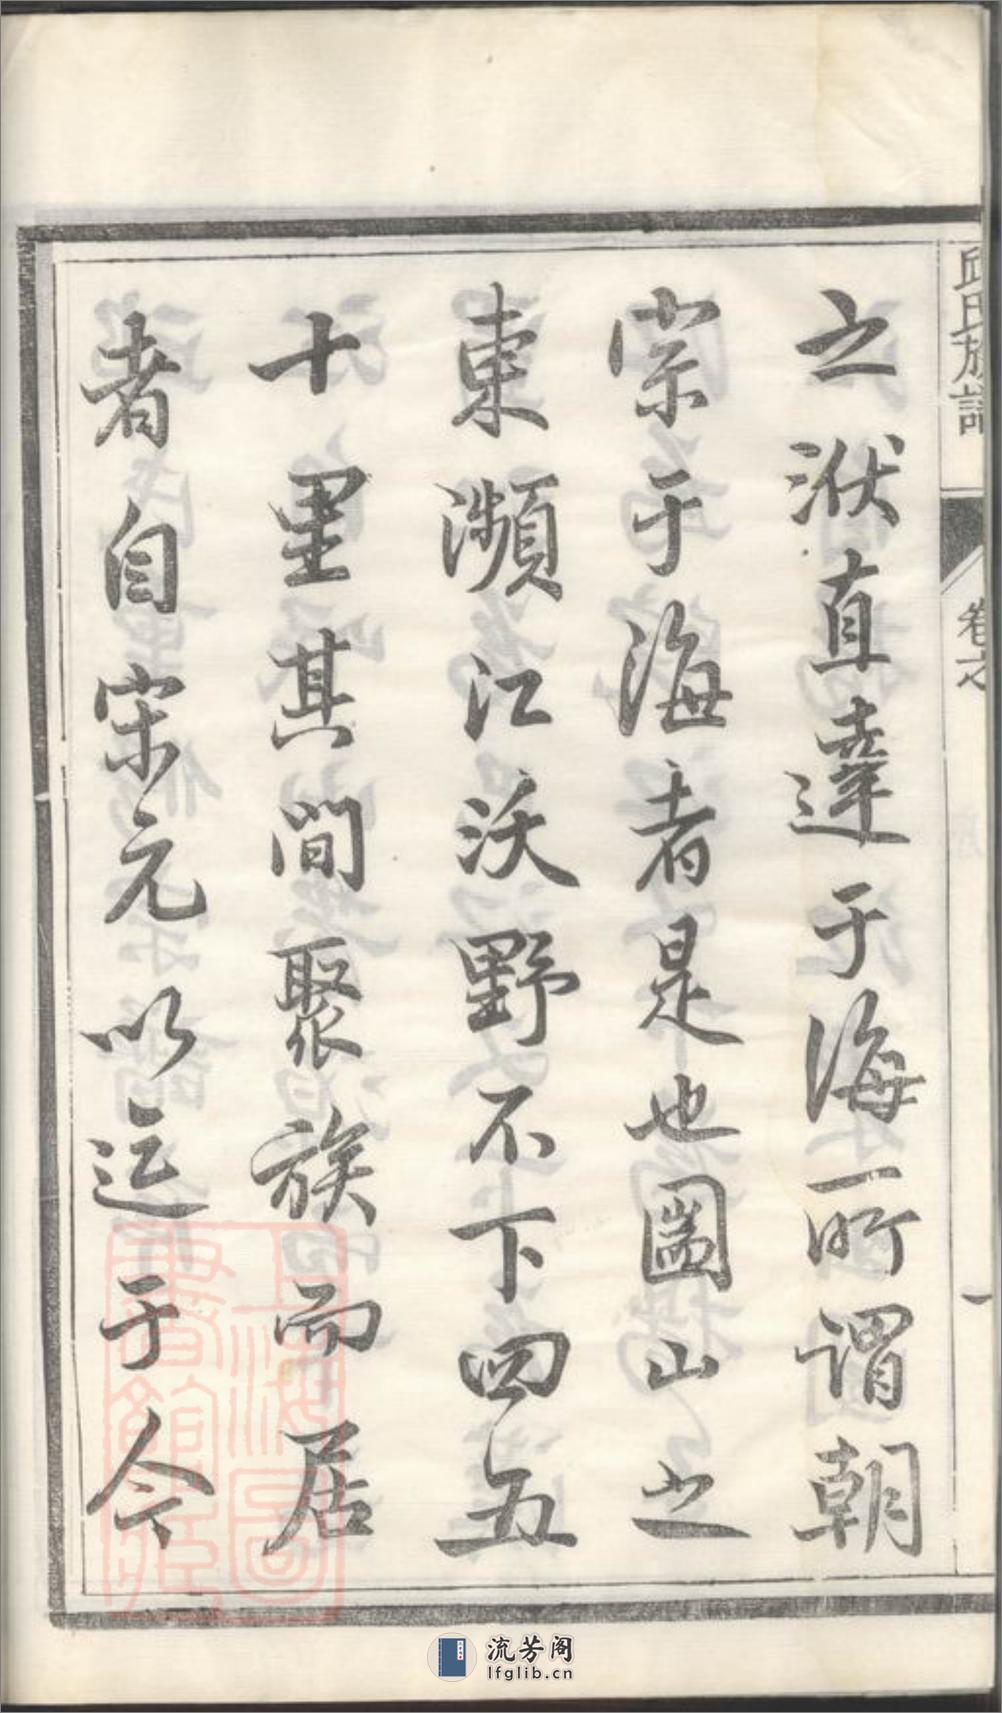 邱氏族譜
卷之
一
之洑直達于海所謂朝
宗于海者是也圌山之
東瀕江沃野不下四五
十里其間聚族而居
者自宋元以迄于今
上海圖
書館藏
流芳阁
lfglib.cn